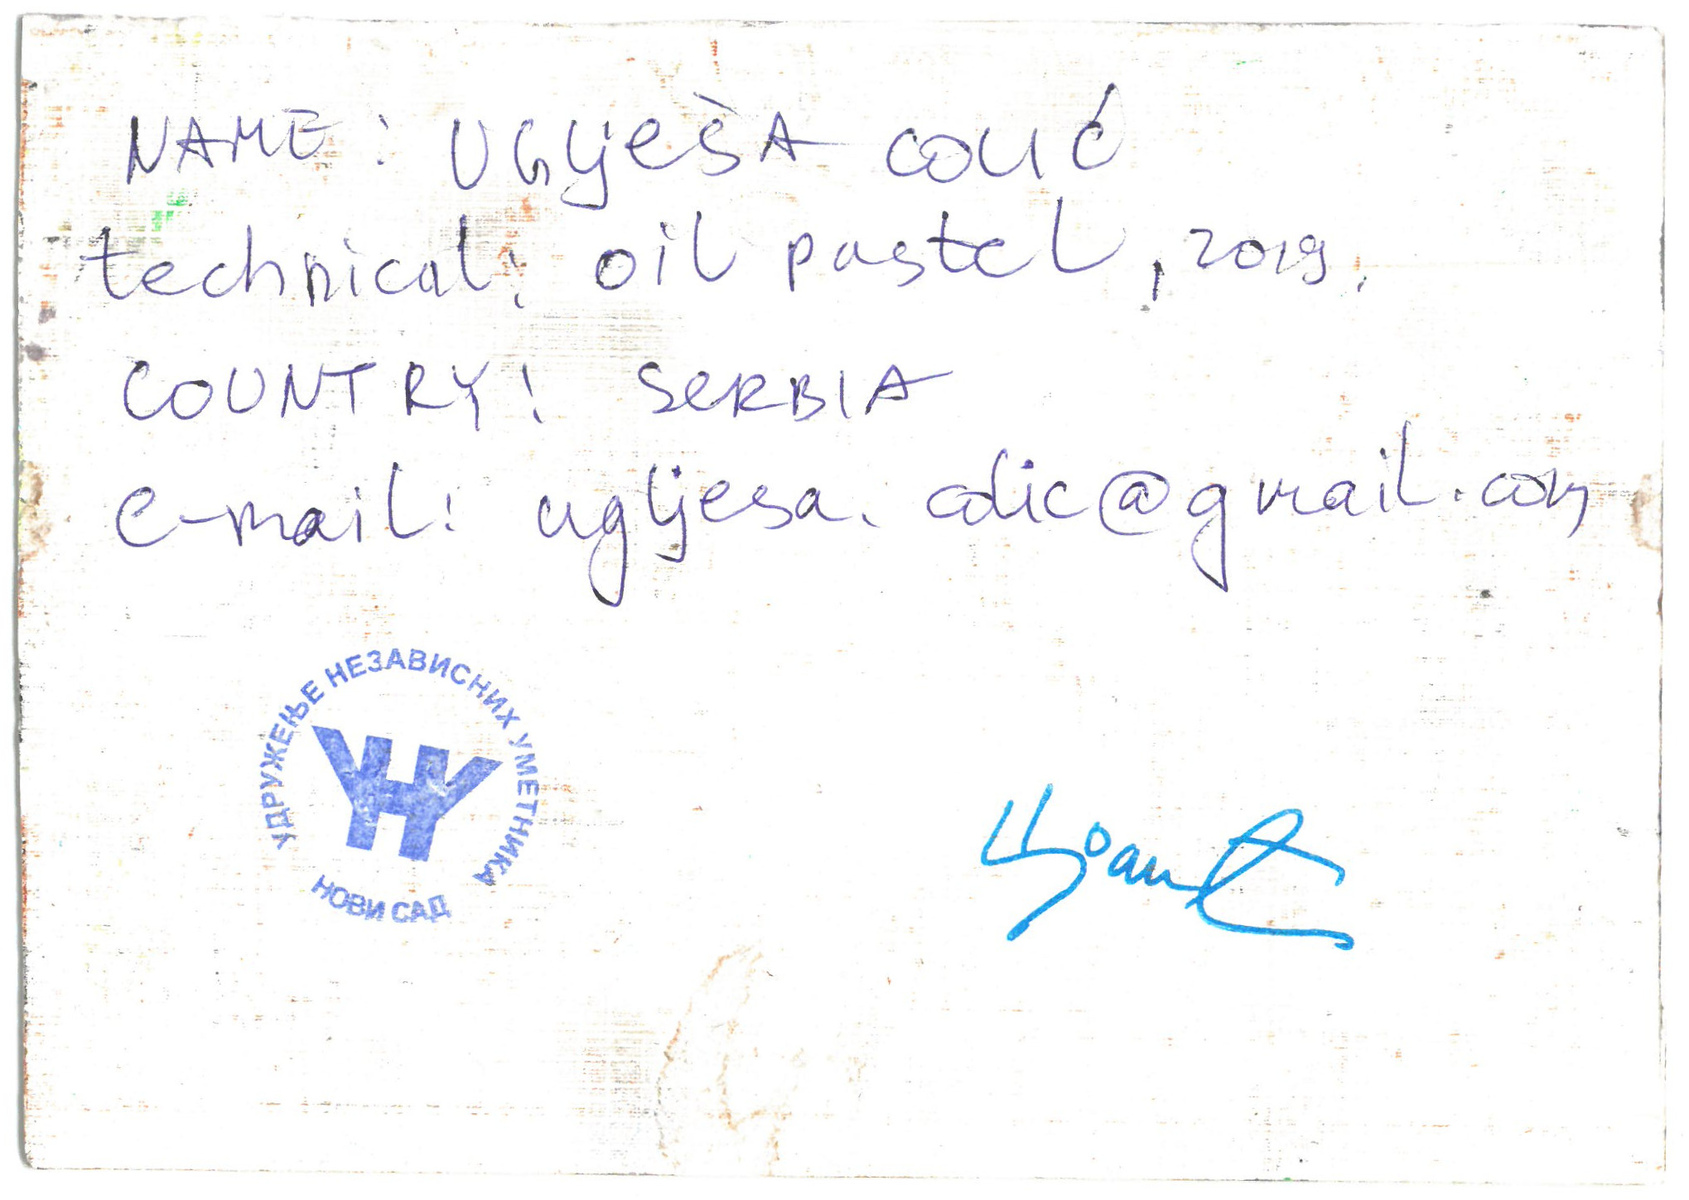 NAME: UGLJEŠA COLIĆ
technical: oil pastel, 2019.
COUNTRY: SERBIA
e-mail: ugljesa.colic@gmail.com
УДРУЖЕЊЕ НЕЗАВИСНИХ УМЕТНИКА
УНУ
НОВИ САД